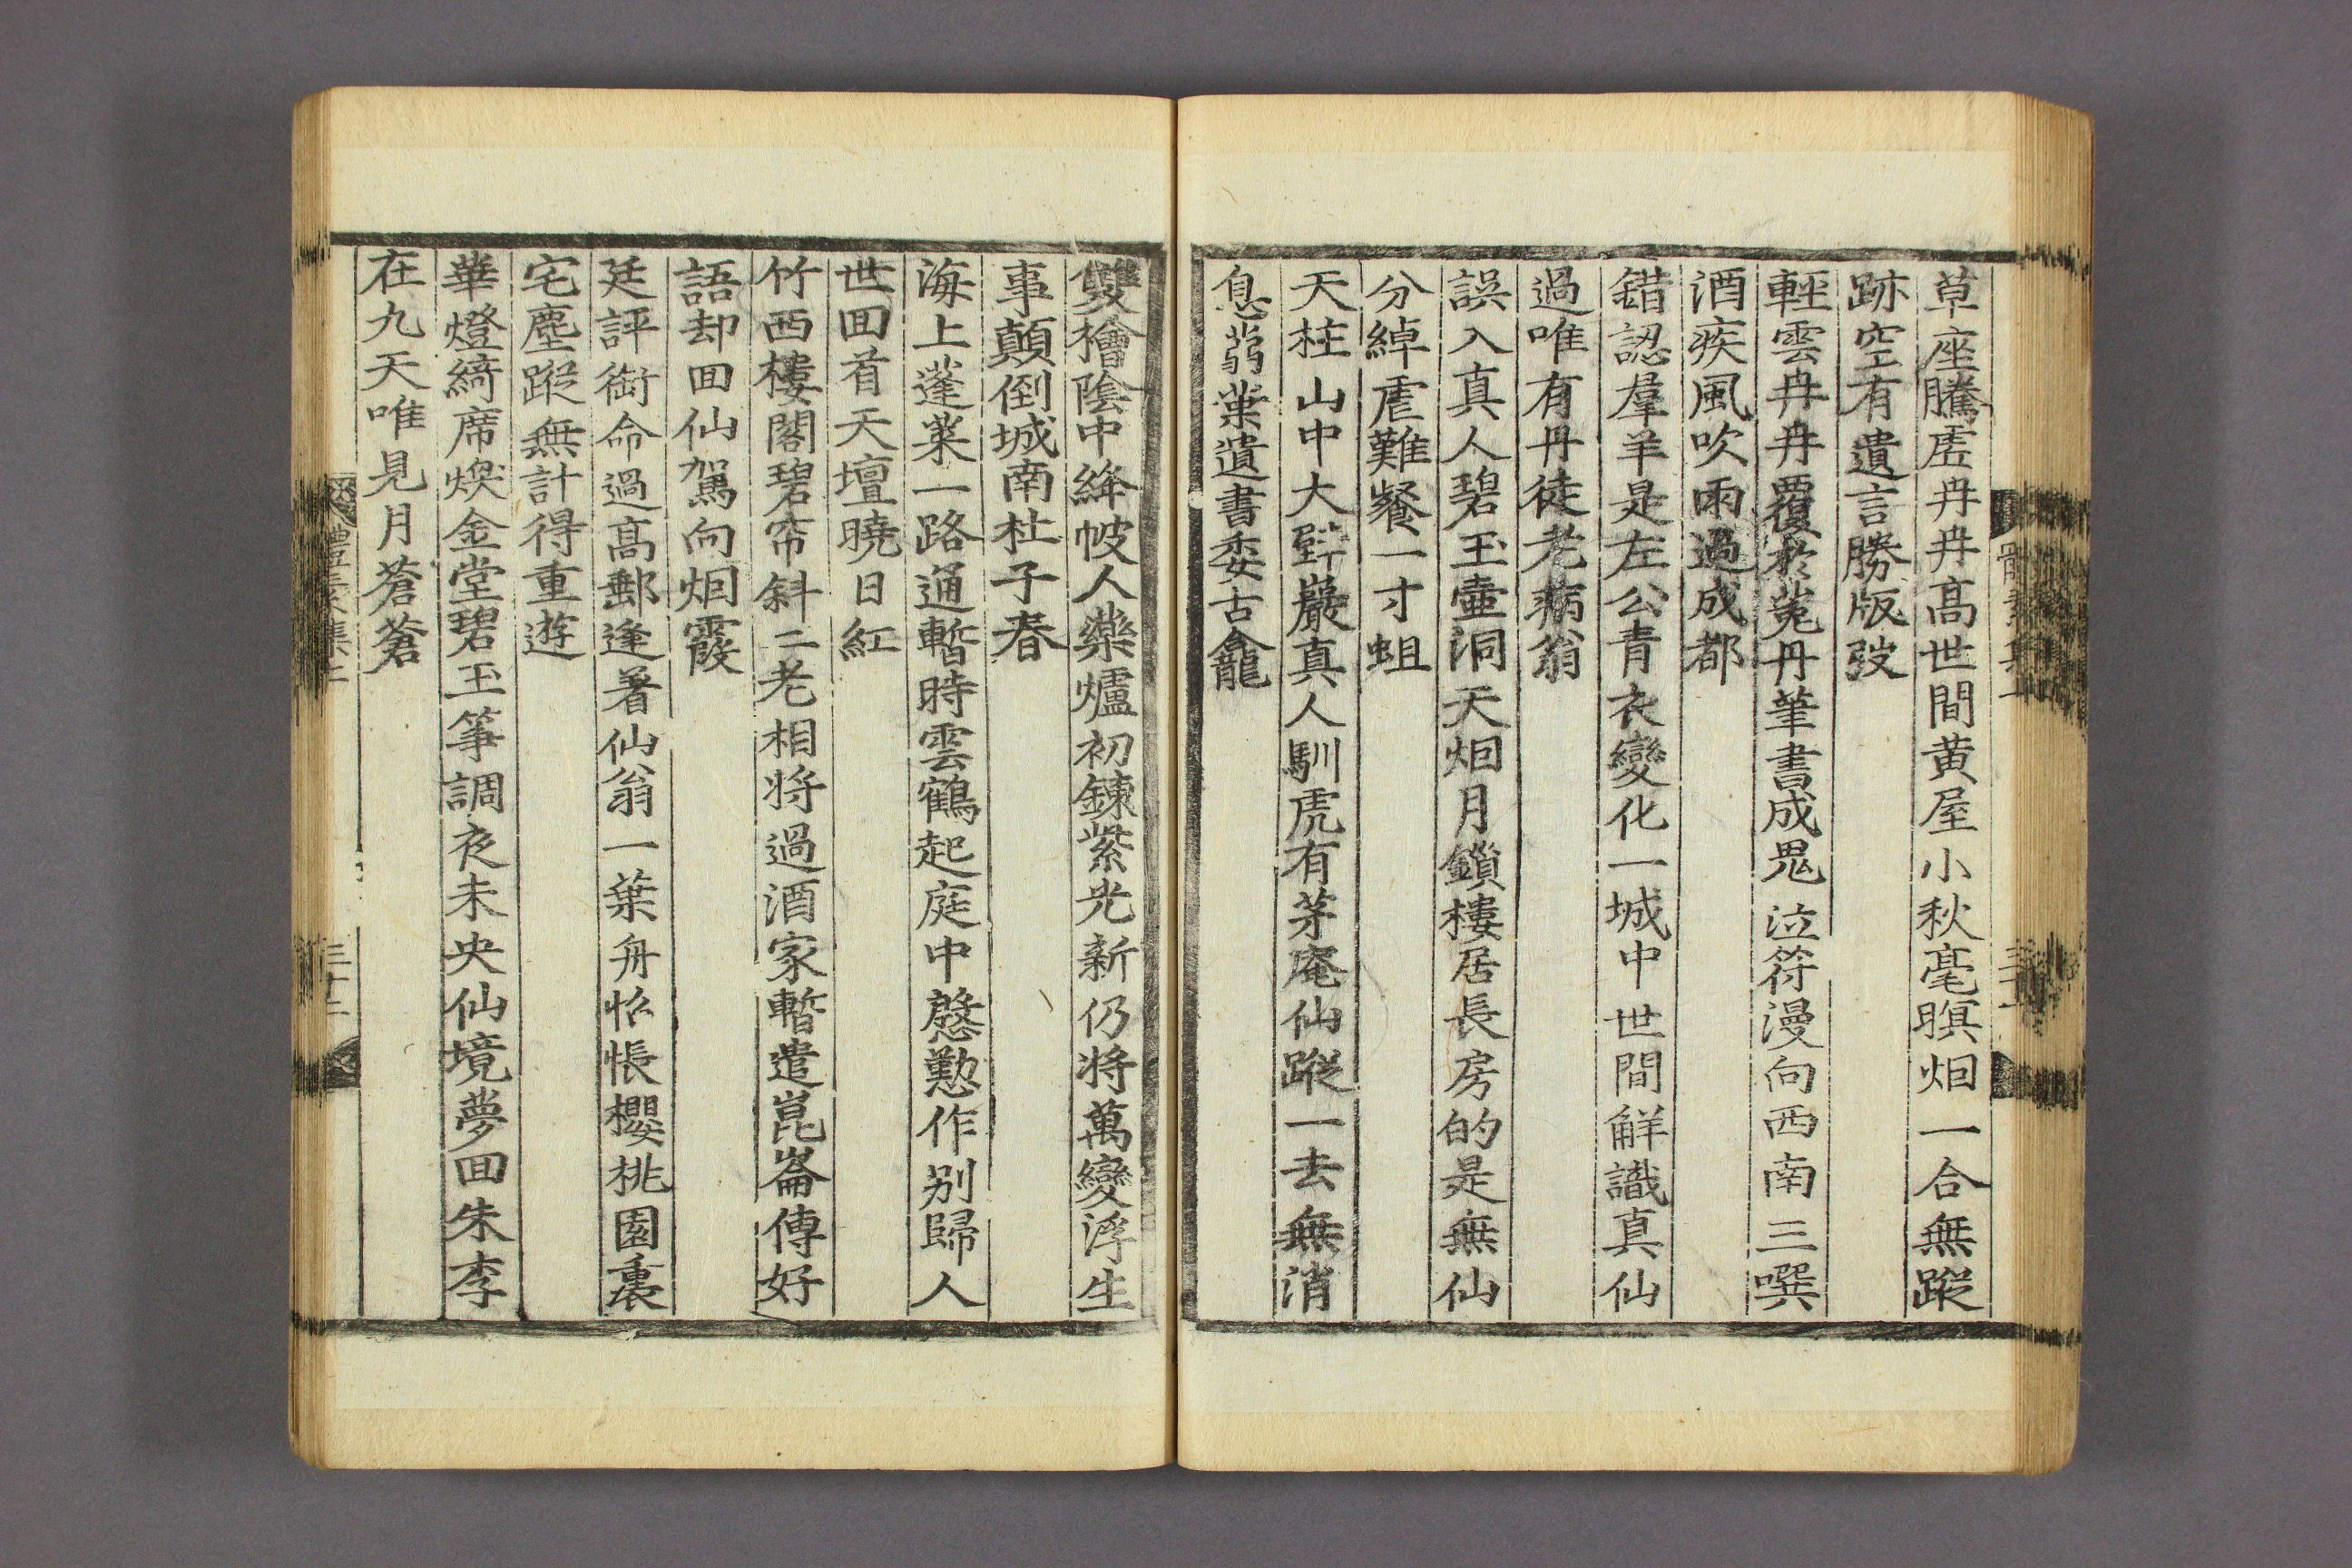 草座騰虗冉冉髙世間黄屋小秋毫暝烟一合無蹤
跡空有遺言勝版弢
輕雲冉冉覆於菟丹筆書成鬼泣符漫向西南三噀
酒疾風吹雨過成都
錯認羣羊是左公青衣變化一城中世間解識真仙
過唯有丹徒老病翁
誤入真人碧玉壷洞天烟月鎖樓居長房的是無仙
分綽虐難餐一寸蛆
天柱山中大嚴真人馴虎有茅庵仙蹤一去無消
息蒻葉遺書委古龕
雙檜陰中絳帔人藥爐初鍊紫光新仍将萬變浮生
事顛倒城南杜子春
海上蓬莱一路通暫時雲鶴起庭中慇懃作别歸人
世回首天壇曉日紅
竹西樓閣碧帘斜二老相将過酒家暫遣崑崙傳好
語却回仙駕向烟霞
廷評銜命過髙郵逢著仙翁一葉舟怊悵櫻桃園裏
宅塵蹤無計得重遊
華燈綺席煥金堂碧玉筝調夜未央仙境夢回朱李
在九天唯見月蒼蒼